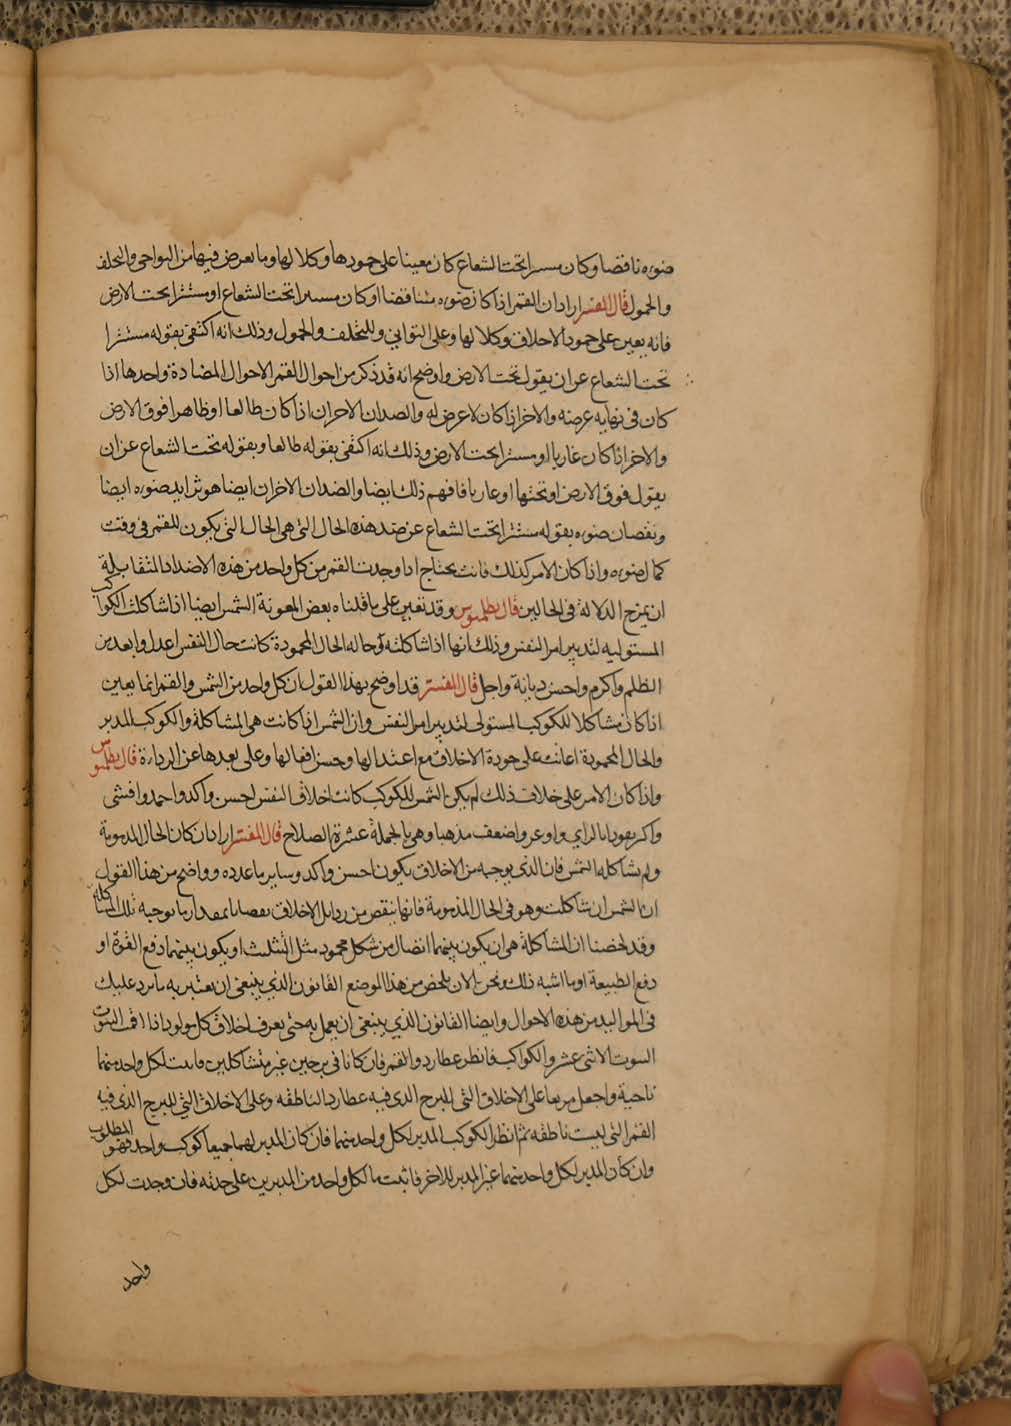 ضوءه ناقصا وكان مستترا تحت الشعاع كان معينا على خمودها وكلالها وما يعرض فيها من التواني والتخلف
والخمول قال المفسر اراد ان القمر اذا كان ضوءه متناقصا او كان مستترا تحت الشعاع او مستترا تحت الارض
فانه يعين على خمود الاخلاق وكلالها وعلى التواني وللتخلف والخمول وذلك انه اكتفى بقوله مستترا
تحت الشعاع عن ان يقول تحت الارض واوضح انه قد ذكر من احوال القمر الاحوال المضادة واحدها اذا
كان في نهاية عرضه والاخر اذا كان لا عرض له والضدان الاخران اذا كان طالعا او ظاهرا فوق الارض
والاخر اذا كان غاربا او مستترا تحت الارض وذلك انه اكتفى بقوله طالعا وبقوله تحت الشعاع عن ان
يقول فوق الارض او تحتها او غاربا فافهم ذلك ايضا والضدان الاخران ايضا هو تزايد ضوءه ايضا
ونقصان ضوءه بقوله مستترا تحت الشعاع عن ضد هذه الحال التي هي الحال التي يكون للقمر في وقت
كمال ضوءه واذا كان الامر كذلك فانت تحتاج اذا وجدت القمر من كل واحد من هذه الاضداد المتقابلة
ان يمزج الدلالة في الحالين قال بطلميوس وقد تعين على ما قلناه بعض المعونة الشمس ايضا اذا شاكلت الكواكب
المستولية لتدبير امر النفس وذلك انها اذا شاكلته وحاله الحال المحمودة كانت حال النفس اعدل وابعد من
الظلم واكرم واحسن ديانة واجل قال المفسر قد اوضح بهذا القول ان كل واحد من الشمس والقمر انما يعين
اذا كان مشاكلا للكوكب المستولي لتدبير امر النفس وان الشمس اذا كانت هي المشاكلة والكوكب المدبر
والحال المحمودة اعانت على جودة الاخلاق مع اعتدالها وحسن افعالها وعلى بعدها عن الرداءة قال بطلميوس
واذا كان الامر على خلاف ذلك لم يكن الشمس للكوكب كانت اخلاق النفس احسن واكد واحمد واقشى
واكـ بقودا بالراي واوعر واضعف مذهبا وهي بالجملة عشرة الصلاح قال المفسر اراد ان كان الحال المذمومة
ولم تشاكله الشمس فان الذي يوجبه من الاخلاق يكون احسن واكد وساير ما عدده وواضح من هذا القول
ان الشمس ان شاكلت وهو في الحال المذمومة فانها ينقص من رذايل الاخلاق نقصانا بمقدار ما يوجبه تلك المشاكلة
وقد لخصنا ان المشاكلة هي ان يكون بينهما اتصال من شكل محمود مثل التثليث او يكون بينهما دفع القوة او
دفع الطبيعة او ما اشبه ذلك ونحن الان نلخص من هذا الموضع القانون الذي ينبغي ان يعتبر به ما يرد عليك
في المواليد من هذه الاحوال وايضا القانون الذي ينبغي ان يعمل به حتى يعرف اخلاق كل مولود اذا اقمت البيوت
البيوت الاثنى عشر والكواكب فانظر عطارد والقمر فان كانا في برجين غير متشاكلين فاثبت لكل واحد منهما
ناحية واجعل مربعا على الاخلاق التي للبرج الذي فيه عطارد الناطقه وعلى الاخلاق التي للبرج الذي فيه
القمر التي ليست ناطقه ثم انظر الكوكب المدبر لكل واحد منهما فان كان المدبر لهما جميعا كوكب واحد فهو المطلوب
وان كان المدبر لكل واحد منهما غير المدبر للاخر فاثبت ما لكل واحد من المدبرين على حدته فان وجدت لكل
واحد